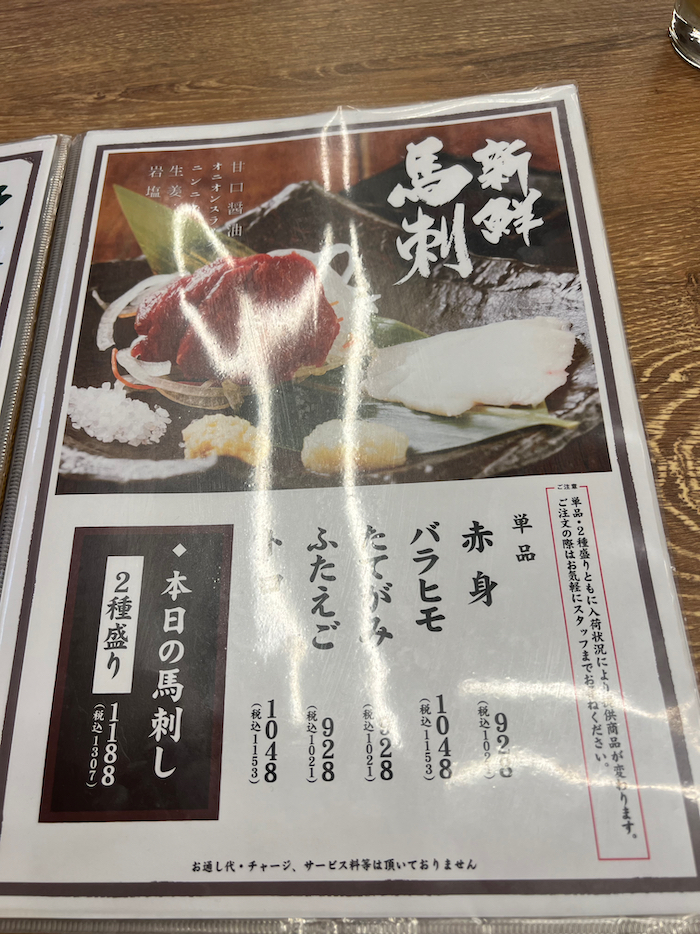 新鮮
馬刺
甘口醤油
オニオンスラ
ニンニ
生姜
岩塩
ご注意
単品・2種盛りともに入荷状況により 供商品が変わります。
ご注文の際はお気軽にスタッフまでお ねください。
単品
赤身
928
(税込102
バラヒモ
1048
(税込1153)
たてがみ
928
(税込1021)
ふたえご
928
(税込1021)
トロ
1048
(税込1153)
◆本日の馬刺し
2種盛り
1188
(税込1307)
お通し代・チャージ、サービス料等は頂いておりません